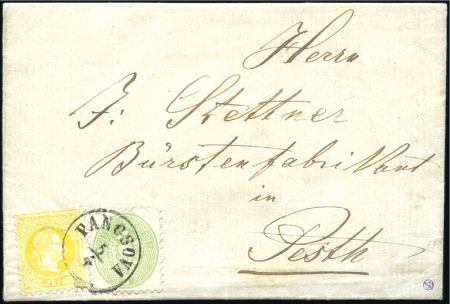 Herrn
J: Stettner
Bürstenfabrikant
in
Pesth
PANCSOVA